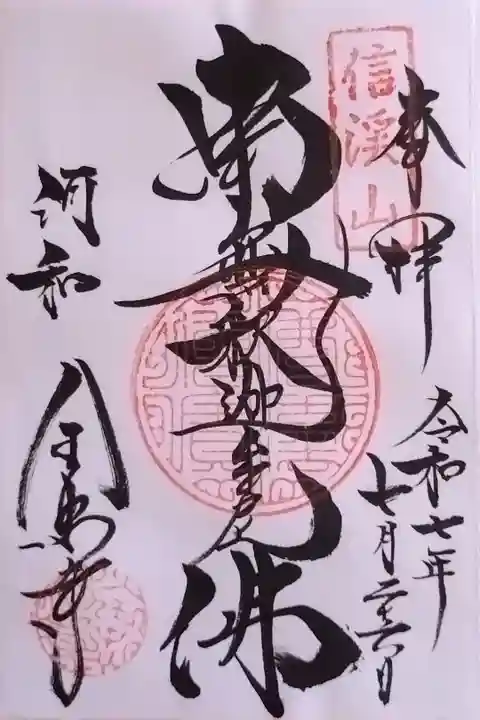 奉拝
信渓山
令和七年
七月二十六日
南無釈迦牟尼佛
河和
全忠寺